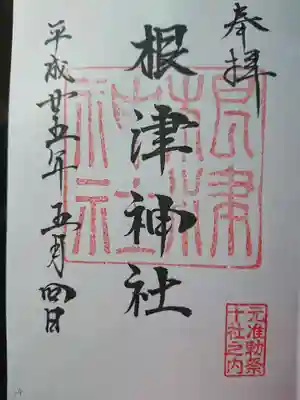 奉拝
根津神社
根津
神社
元准勅祭
十社之内
平成廿五年五月四日